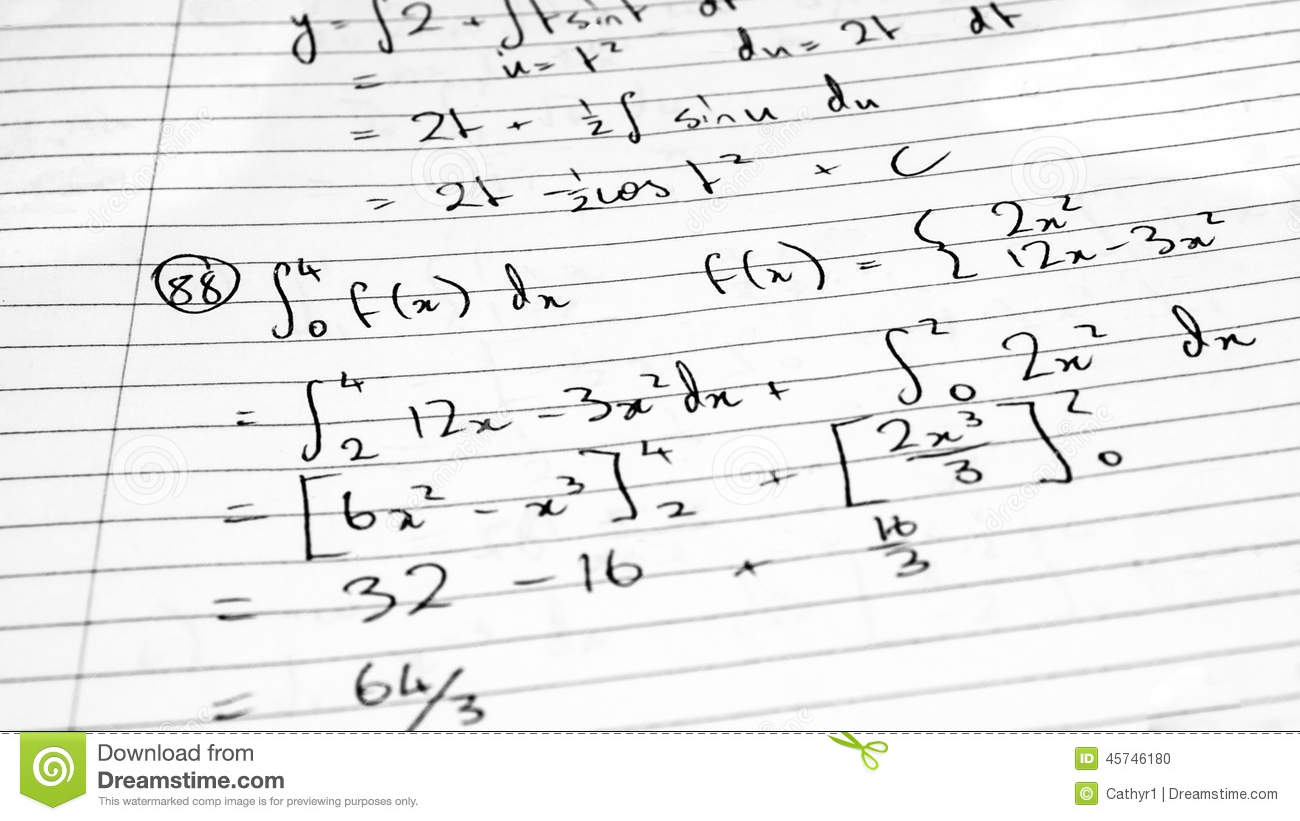 y = ∫2 + ∫t sint dt
= u = t² du = 2t dt
= 2t + ½ ∫ sinu du
= 2t - ½ cos t² + C
88 ∫₀⁴ f(x) dx f(x) = { 2x²
12x - 3x²
= ∫₂⁴ 12x - 3x² dx + ∫₀² 2x² dx
= [6x² - x³]₂⁴ + [2x³/3]₀²
= 32 - 16 + 16/3
= 64/3
Download from
Dreamstime.com
This watermarked comp image is for previewing purposes only.
ID 45746180
© Cathyr1 | Dreamstime.com